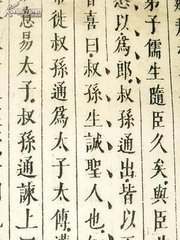 弟子儒生隨臣久矣與臣
悉以爲郎叔孫通出皆以
皆喜曰叔孫生誠聖人也
帝徙叔孫通爲太子太傅漢
意易太子叔孫通諫上曰